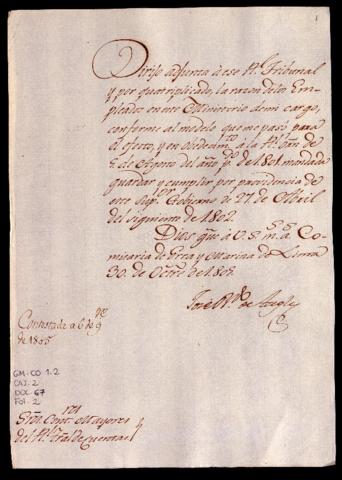 1
Dirijo adjunta à ese Rl. Tribunal
y por quatriplicado, la razon delos Em-
pleados en este Ministerio demi cargo,
conforme al modelo que me pasó para
el efecto, y en obedecimto. á la Rl. orn. de
2 de Agosto del año pº. pº. de 1801 mandada
guardar y cumplir por providencia de
este Supor. Gobierno de 27 de Abril
del siguiente de 1802.
Dios gue. à V.S.S. ms. as. Co-
misaria de Grra y Marina de Lima
30 de Octre. de 180
Contestada a 6 de
de 1805
GM-CO 1.2
CAJ. 2
DOC. 67
Fol. 2
Sres. Contres. Mayores
del Rl. Tral de Cuentas